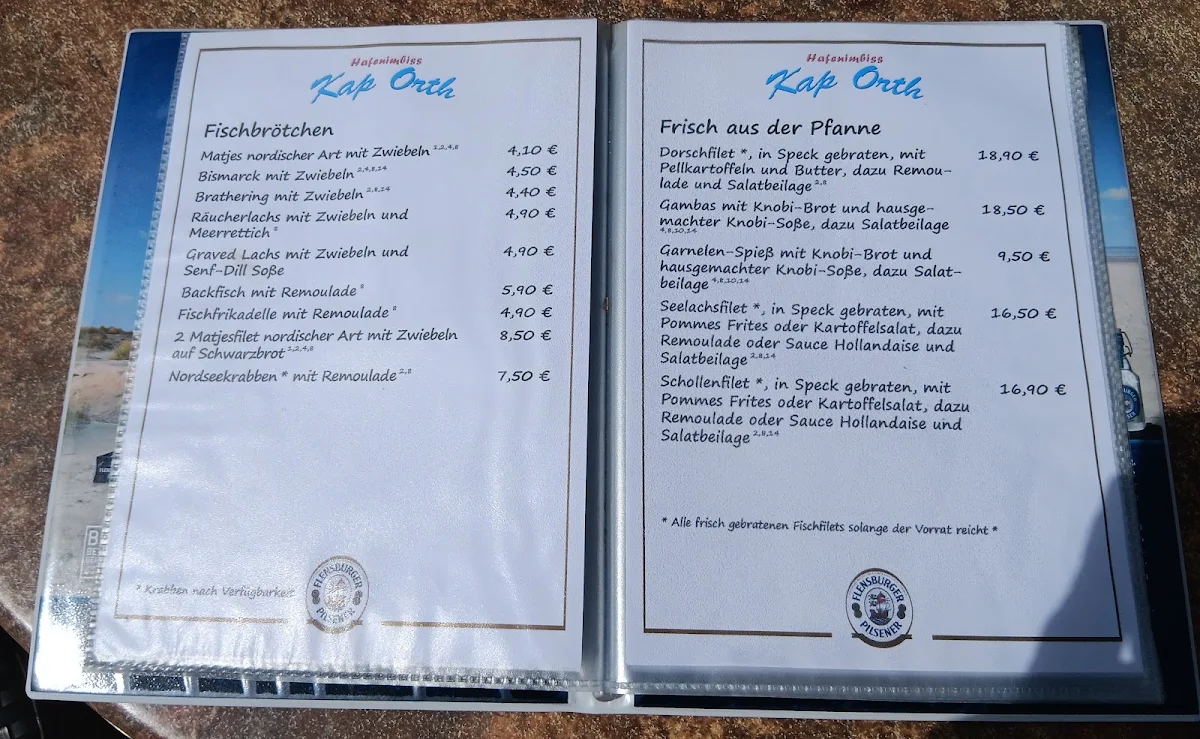 Hafenimbiss
Kap Orth
Fischbrötchen
Matjes nordischer Art mit Zwiebeln 1,2,4,8 4,10 €
Bismarck mit Zwiebeln 2,4,8,14 4,50 €
Brathering mit Zwiebeln 2,8,14 4,40 €
Räucherlachs mit Zwiebeln und 4,90 €
Meerrettich 8
Graved Lachs mit Zwiebeln und 4,90 €
Senf-Dill Soße
Backfisch mit Remoulade 8 5,90 €
Fischfrikadelle mit Remoulade 8 4,90 €
2 Matjesfilet nordischer Art mit Zwiebeln 8,50 €
auf Schwarzbrot 1,2,4,8
Nordseekrabben * mit Remoulade 2,8 7,50 €
* Krabben nach Verfügbarkeit
FLENSBURGER
PILSENER
Hafenimbiss
Kap Orth
Frisch aus der Pfanne
Dorschfilet *, in Speck gebraten, mit 18,90 €
Pellkartoffeln und Butter, dazu Remou-
lade und Salatbeilage 2,8
Gambas mit Knobi-Brot und hausge- 18,50 €
machter Knobi-Soße, dazu Salatbeilage
4,8,10,14
Garnelen-Spieß mit Knobi-Brot und 9,50 €
hausgemachter Knobi-Soße, dazu Salat-
beilage 4,8,10,14
Seelachsfilet *, in Speck gebraten, mit 16,50 €
Pommes Frites oder Kartoffelsalat, dazu
Remoulade oder Sauce Hollandaise und
Salatbeilage 2,8,14
Schollenfilet *, in Speck gebraten, mit 16,90 €
Pommes Frites oder Kartoffelsalat, dazu
Remoulade oder Sauce Hollandaise und
Salatbeilage 2,8,14
* Alle frisch gebratenen Fischfilets solange der Vorrat reicht *
FLENSBURGER
PILSENER